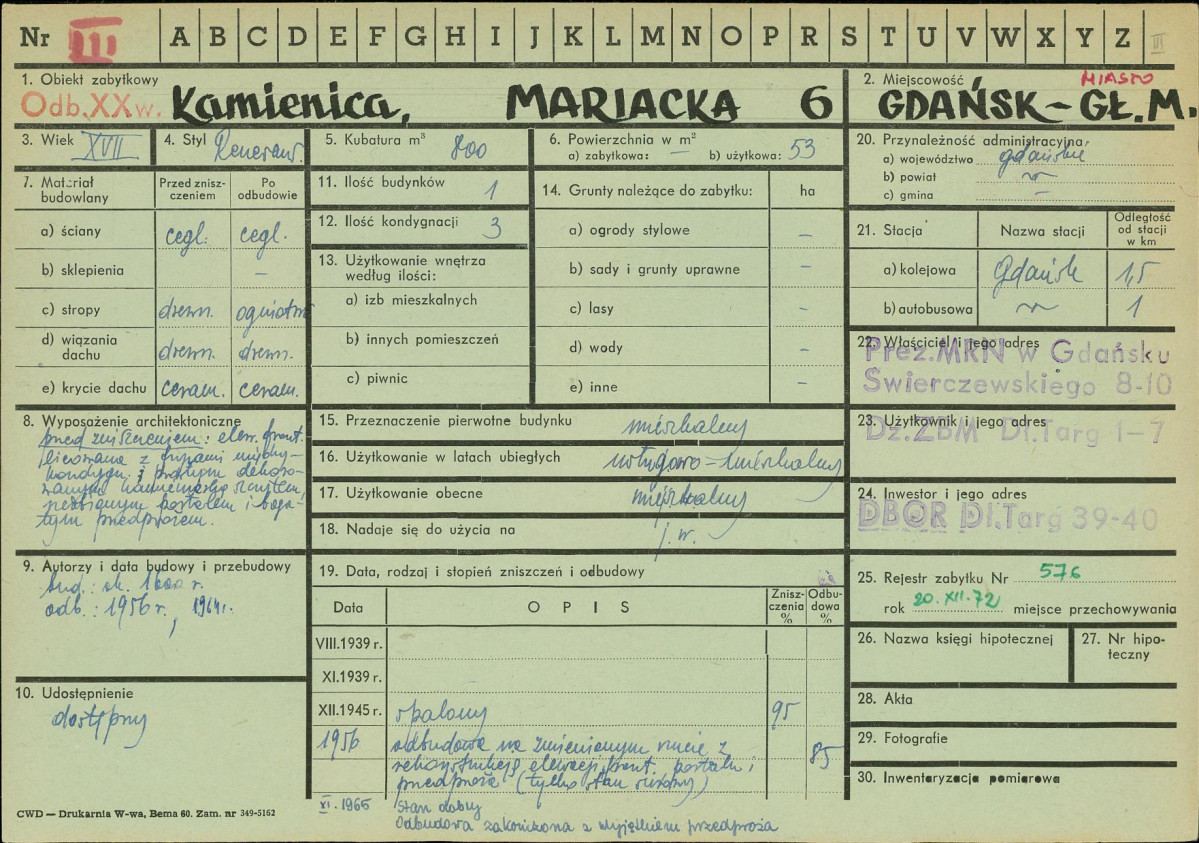 Nr III A B C D E F G H I J K L M N O P R S T U V W X Y Z III
1. Obiekt zabytkowy
Odb. XX w. Kamienica, MARIACKA 6
2. Miejscowość MIASTO
GDAŃSK – GŁ. M.
3. Wiek XVII
4. Styl Renesans.
5. Kubatura m³ 800
6. Powierzchnia w m²
a) zabytkowa: — b) użytkowa: 53
20. Przynależność administracyjna
a) województwo gdańskie
b) powiat "
c) gmina —
7. Materiał budowlany
Przed zniszczeniem
Po odbudowie
a) ściany cegl. cegl.
b) sklepienia —
c) stropy drewn. ogniotrw.
d) wiązania dachu drewn. drewn.
e) krycie dachu ceram. ceram.
11. Ilość budynków 1
12. Ilość kondygnacji 3
13. Użytkowanie wnętrza
według ilości:
a) izb mieszkalnych
b) innych pomieszczeń
c) piwnic
14. Grunty należące do zabytku: ha
a) ogrody stylowe —
b) sady i grunty uprawne —
c) lasy —
d) wody —
e) inne —
21. Stacja Nazwa stacji Odległość od stacji w km
a) kolejowa Gdańsk 1,5
b) autobusowa " 1
22. Właściciel i jego adres
Prez. MRN w Gdańsku
Świerczewskiego 8-10
23. Użytkownik i jego adres
Dz. ZBM Dl. Targ 1-7
24. Inwestor i jego adres
DBOR Dl. Targ 39-40
8. Wyposażenie architektoniczne
przed zniszczeniem: elew. front.
licowana z fryzami między-
kondygn. i bogatym dekoro-
wanym kamieniarką szczytem,
rzeźbionym portalem i boga-
tym przedprożem.
15. Przeznaczenie pierwotne budynku mieszkalny
16. Użytkowanie w latach ubiegłych usługowo-mieszkalny
17. Użytkowanie obecne mieszkalny
18. Nadaje się do użycia na j. w.
9. Autorzy i data budowy i przebudowy
bud.: ok. 1600 r.
odb.: 1956 r., 1964 r.
10. Udostępnienie
dostępny
19. Data, rodzaj i stopień zniszczeń i odbudowy
Data OPIS Zniszczenia % Odbudowa %
VIII.1939 r.
XI.1939 r.
XII.1945 r. spalony 95
1956 odbudowa na zmienionym rzucie z 85
rekonstrukcją elewacji front. portalu i
przedproża (tylko stan surowy)
XI. 1965 Stan dobry
Odbudowa zakończona z wyjątkiem przedproża
25. Rejestr zabytku Nr 576
rok 20.XII.72 miejsce przechowywania
26. Nazwa księgi hipotecznej
27. Nr hipoteczny
28. Akta
29. Fotografie
30. Inwentaryzacja pomiarowa
CWD — Drukarnia W-wa, Bema 60. Zam. nr 349-5162